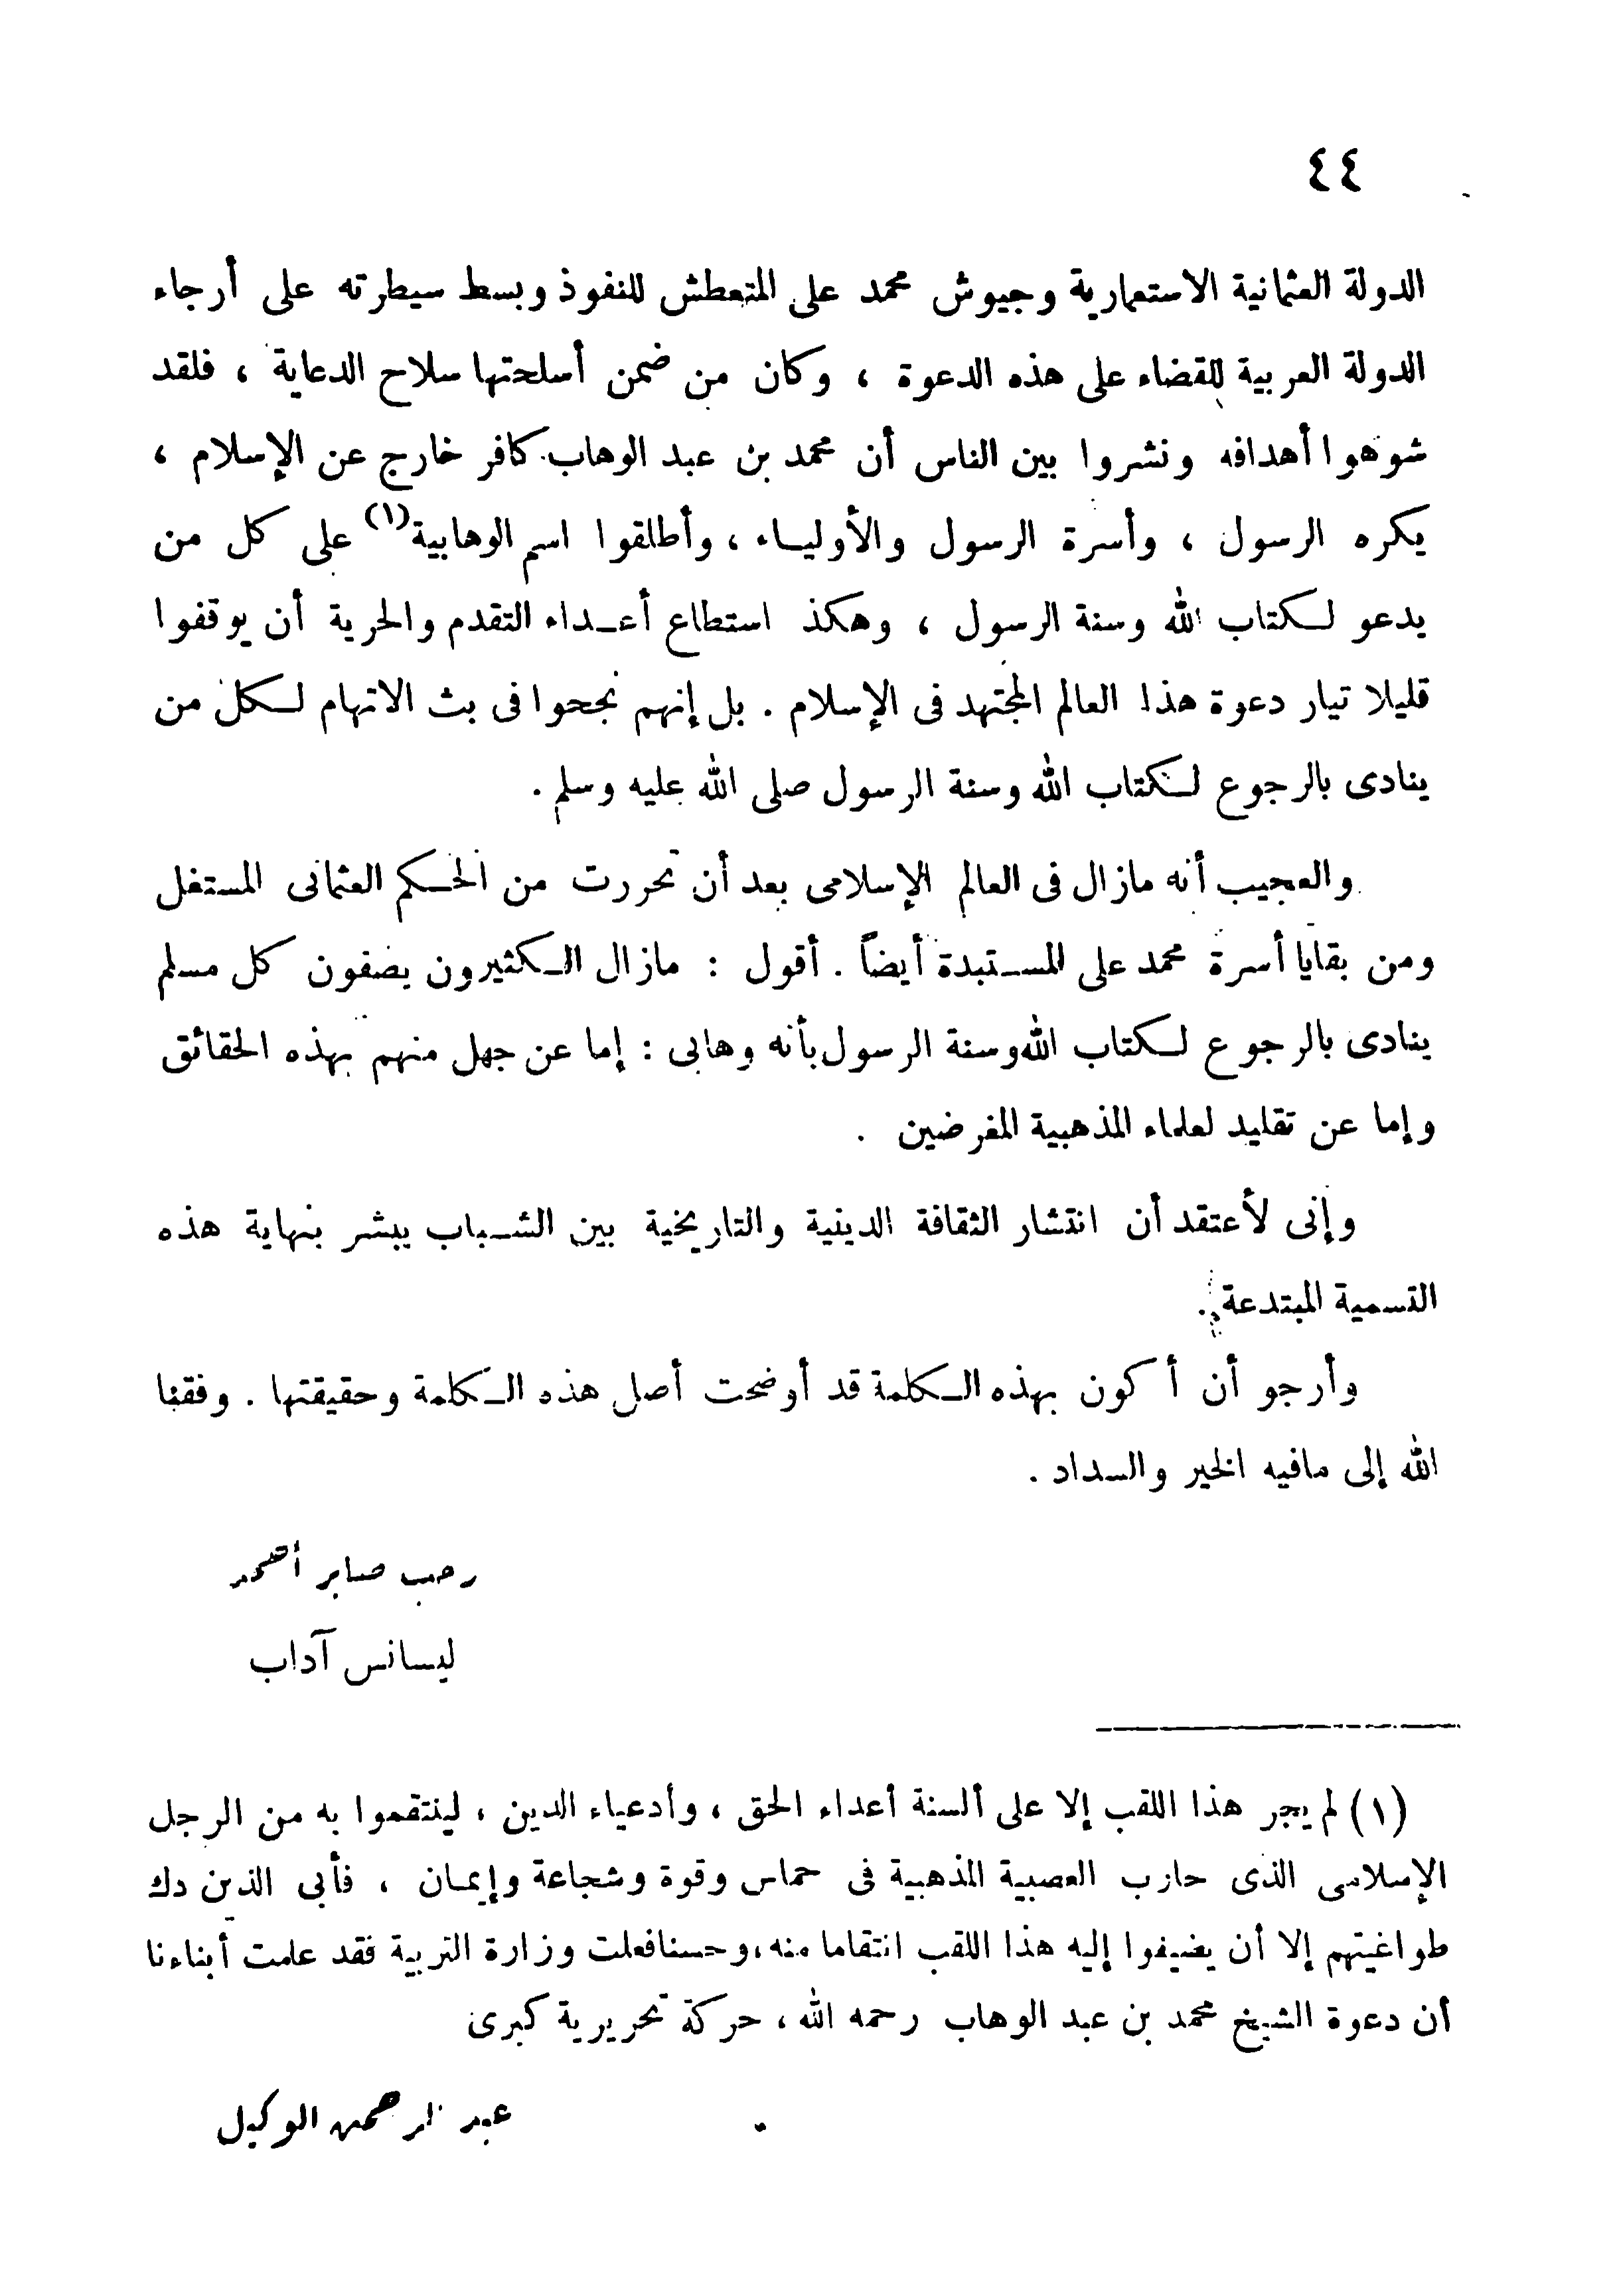 ٤٤
الدولة العثمانية الاستعمارية وجيوش محمد على المتعطش للنفوذ وبسط سيطرته على أرجاء
الدولة العربية للقضاء على هذه الدعوة ، وكان من ضمن أسلحتها سلاح الدعاية ، فلقد
شوهوا أهدافه ونشروا بين الناس أن محمد بن عبد الوهاب كافر خارج عن الإسلام ،
يكره الرسول ، وأسرة الرسول والأولياء ، وأطلقوا اسم الوهابية (١) على كل من
يدعو لكتاب الله وسنة الرسول ، وهكذ استطاع أعداء التقدم والحرية أن يوقفوا
قليلا تيار دعوة هذا العالم المجتهد فى الإسلام . بل إنهم نجحوا فى بث الاتهام لكل من
ينادى بالرجوع لكتاب الله وسنة الرسول صلى الله عليه وسلم .
والعجيب أنه مازال فى العالم الإسلامى بعد أن تحررت من الحكم العثمانى المستغل
ومن بقايا أسرة محمد على المستبدة أيضاً . أقول : مازال الكثيرون يصفون كل مسلم
ينادى بالرجوع لكتاب الله وسنة الرسول بأنه وهابى : إما عن جهل منهم بهذه الحقائق
وإما عن تقليد لعلماء المذهبية المغرضين .
وإنى لأعتقد أن انتشار الثقافة الدينية والتاريخية بين الشباب يبشر بنهاية هذه
التسمية المبتدعة .
وأرجو أن أكون بهذه الكلمة قد أوضحت أصل هذه الكلمة وحقيقتها . وفقنا
الله إلى مافيه الخير والسداد .
رجب صابر أحمد
ليسانس آداب
(١) لم يجر هذا اللقب إلا على ألسنة أعداء الحق ، وأدعياء الدين ، لينتقموا به من الرجل
الإسلامى الذى حارب العصبية المذهبية فى حماس وقوة وشجاعة وإيمان ، فأبى الذين دك
طواغيتهم إلا أن يضيفوا إليه هذا اللقب انتقاما منه ، وحسنا فعلت وزارة التربية فقد علمت أبناءنا
أن دعوة الشيخ محمد بن عبد الوهاب رحمه الله ، حركة تحريرية كبرى
عبد الرحمن الوكيل